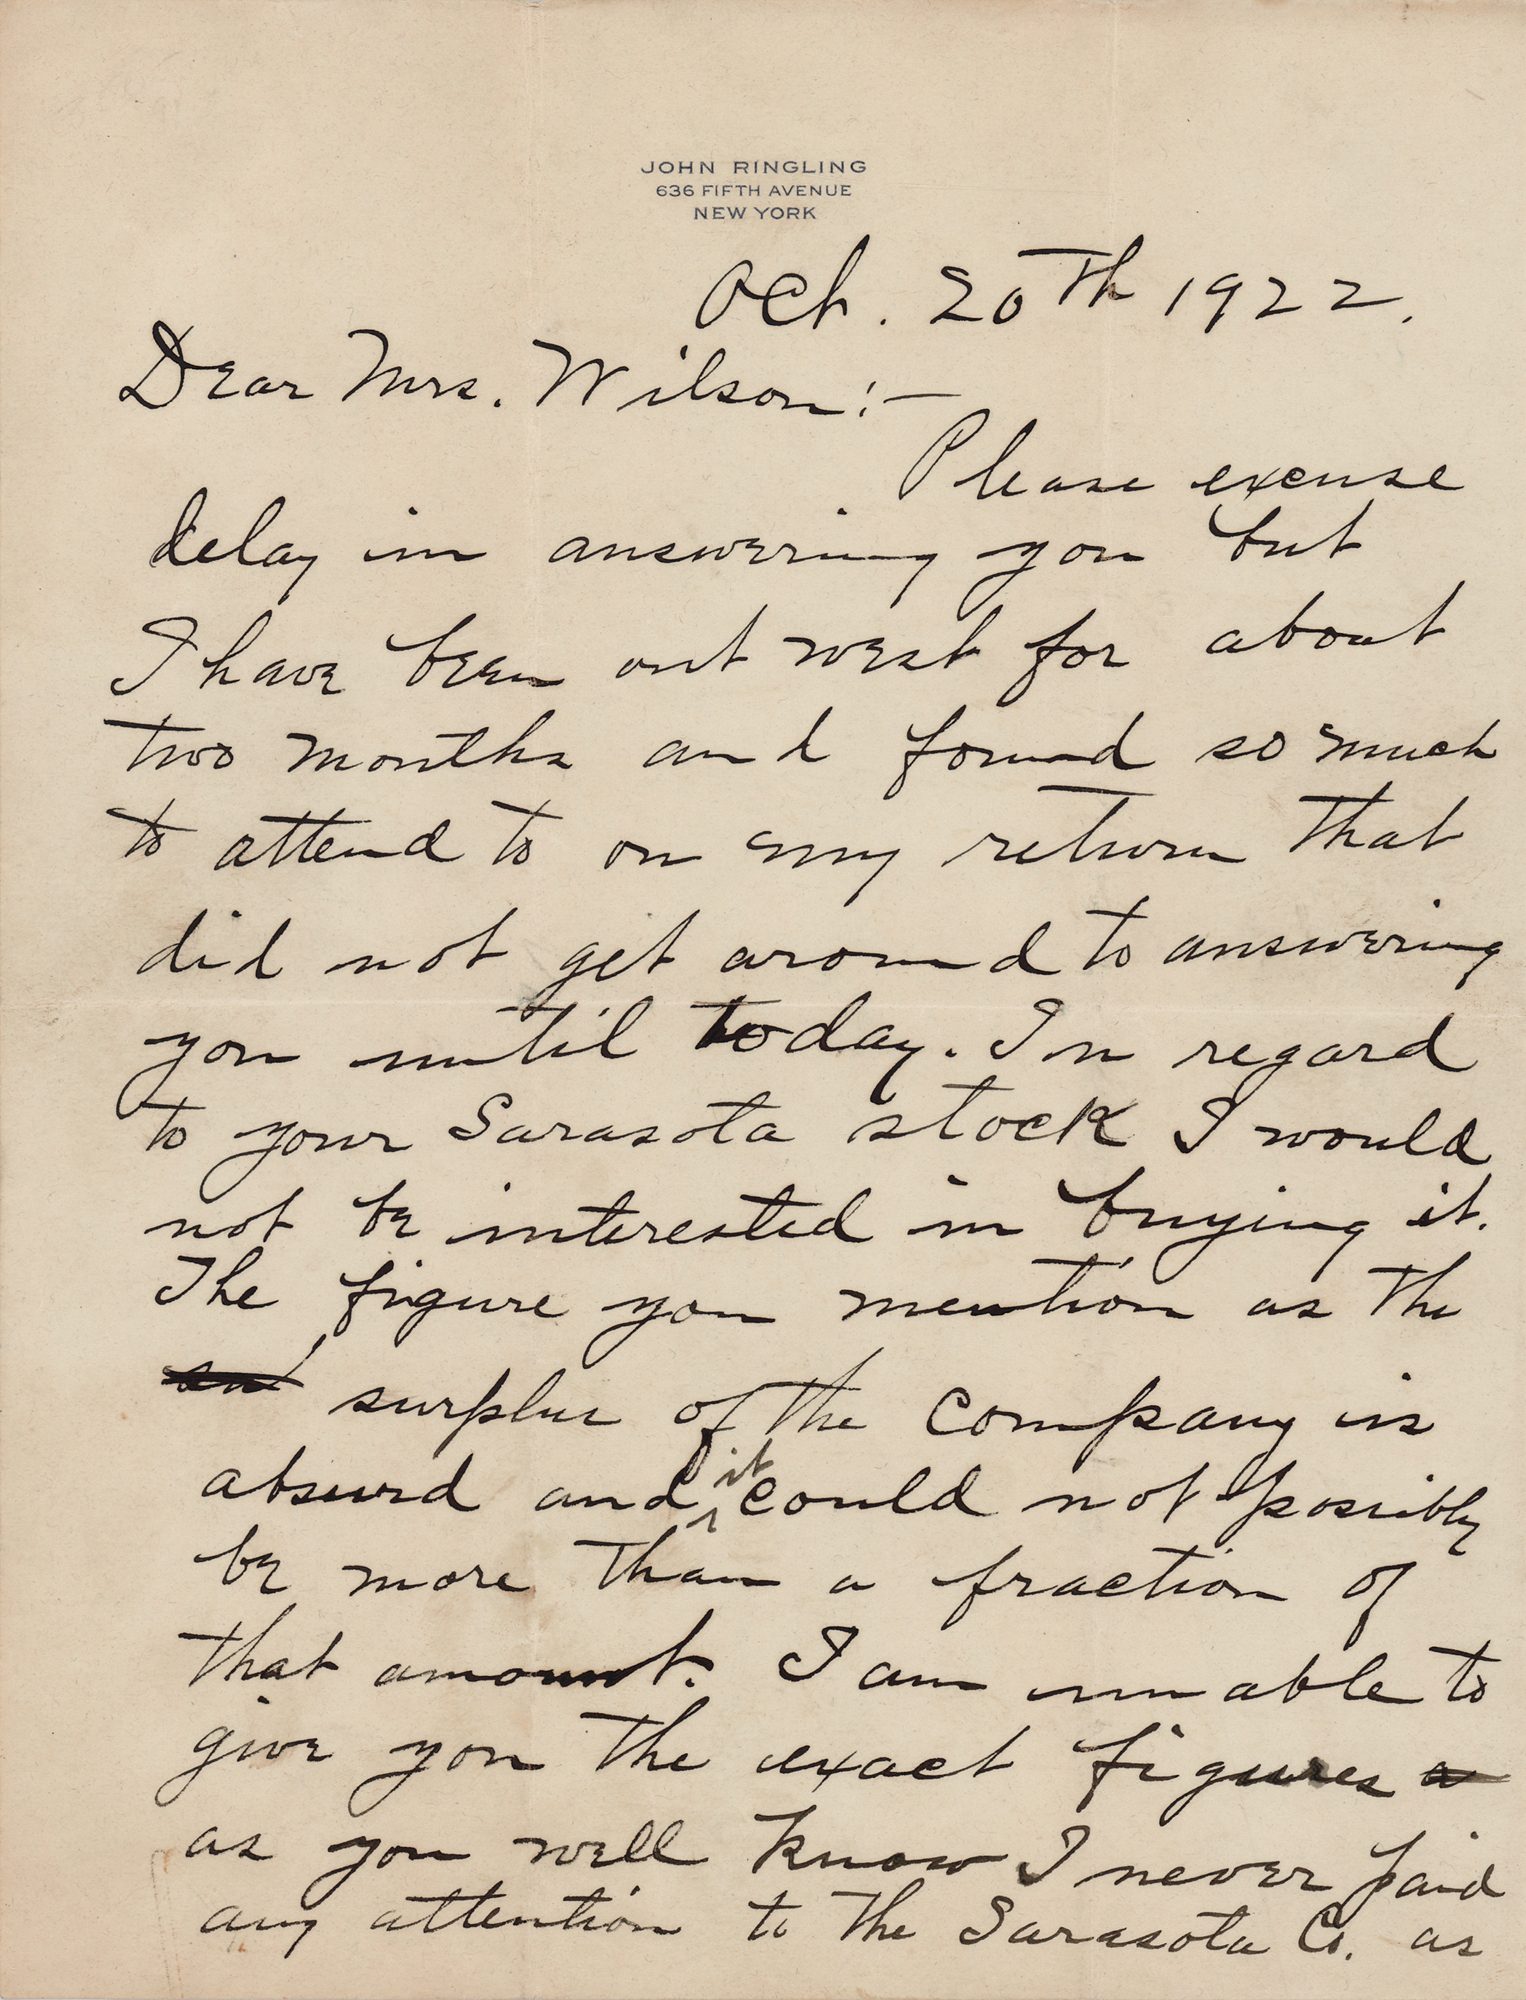 JOHN RINGLING
636 FIFTH AVENUE
NEW YORK
Oct. 20th 1922.
Dear Mrs. Wilson:-
Please excuse
delay in answering you but
I have been out west for about
two months and found so much
to attend to on my return that
did not get around to answering
you until today. In regard
to your Sarasota stock I would
not be interested in buying it.
The figure you mention as the
surplus of the company is
absurd and it could not possibly
be more than a fraction of
that amount. I am unable to
give you the exact figures a
as you well know I never paid
any attention to the Sarasota Co. as